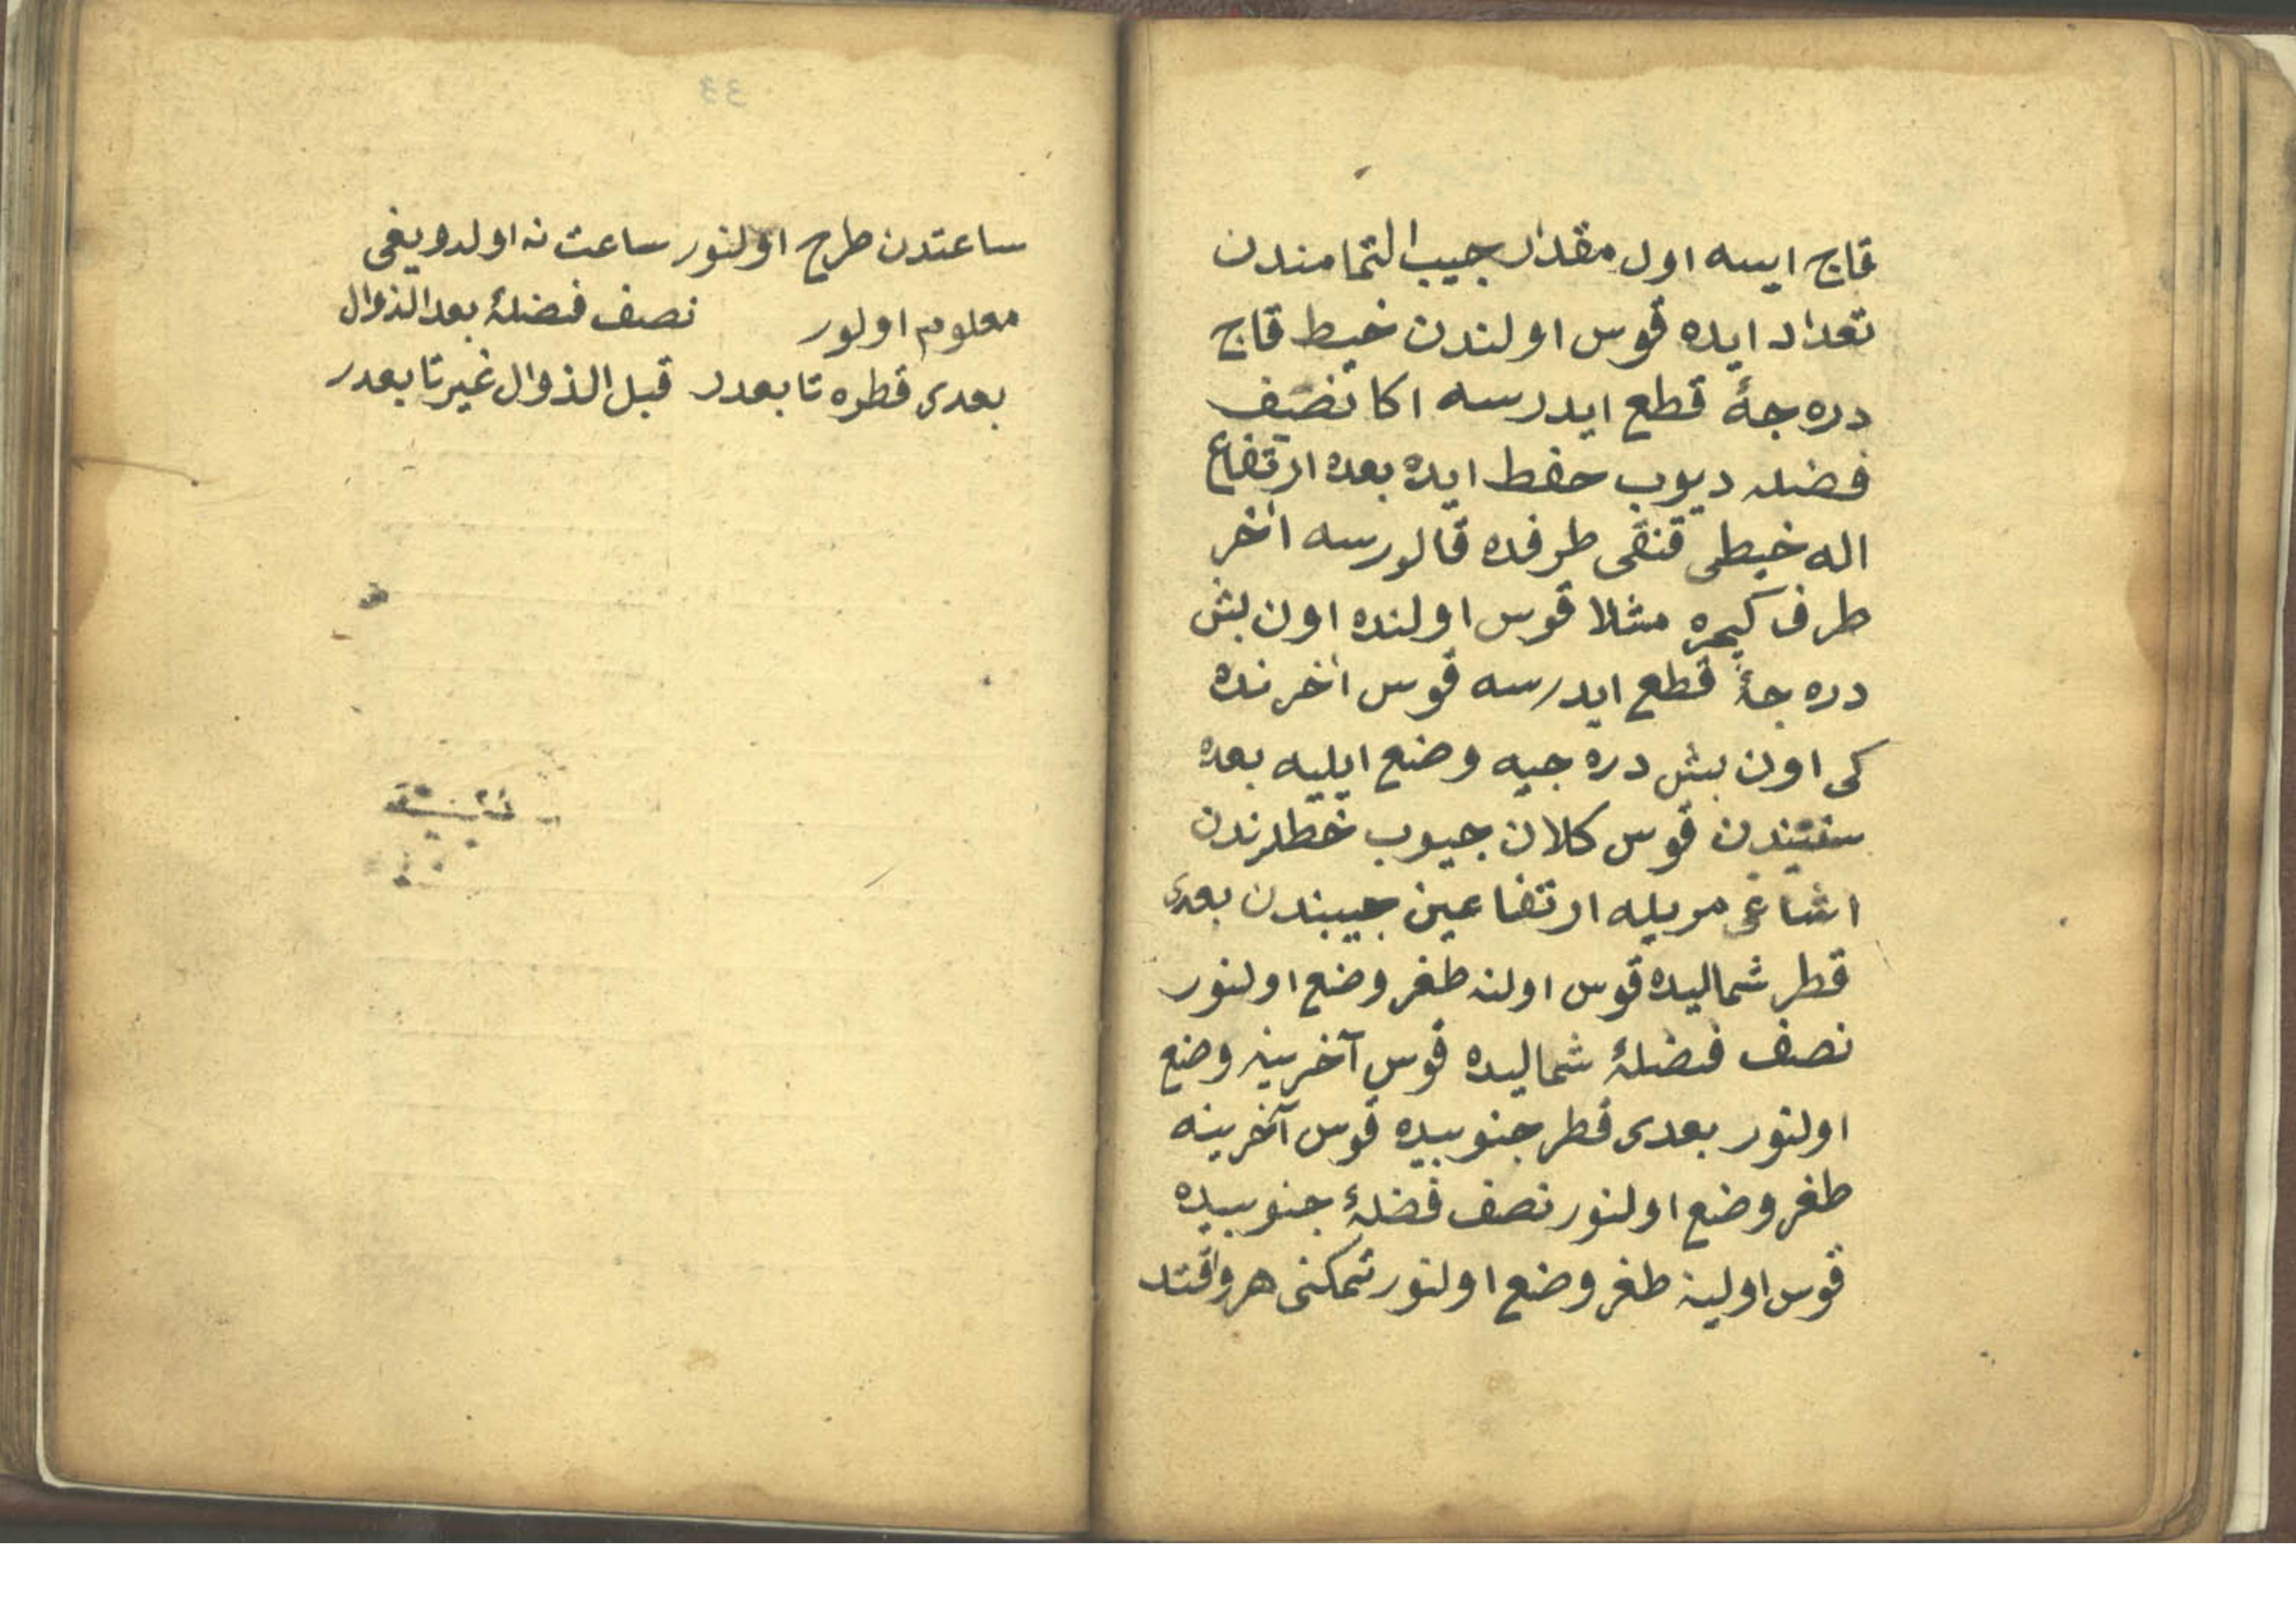 قاج ايسه اول مقدار جيب التمامندن
تعداد ايده قوس اولندن خيط قاج
دره جۀ قطع ايدرسه اكا نصف
فضله ديوب حفظ ايده بعده ارتفاع
اله خيطى قنقى طرفده قالورسه اخر
طرف كيره مثلا قوس اولنده اون بش
دره جۀ قطع ايدرسه قوس اخرنده
كى اون بش دره جيه وضع ايليه بعده
ستيندن قوس كلان جيوب خطلرندن
اشاغى مريله ارتفاعين جيبندن بعدى
قطر شماليده قوس اولنه طغر وضع اولنور
نصف فضلۀ شماليده قوس آخرينه وضع
اولنور بعدى قطر جنوبيده قوس آخرينه
طغر وضع اولنور نصف فضلۀ جنوبيده
قوس اولينه طغر وضع اولنور تمكنى هر وقتد
ساعتدن طرح اولنور ساعت نه اولدويغى
معلوم اولور نصف فضلۀ بعد الذوال
بعدى قطره تابعدر قبل الذوال غير تابعدر